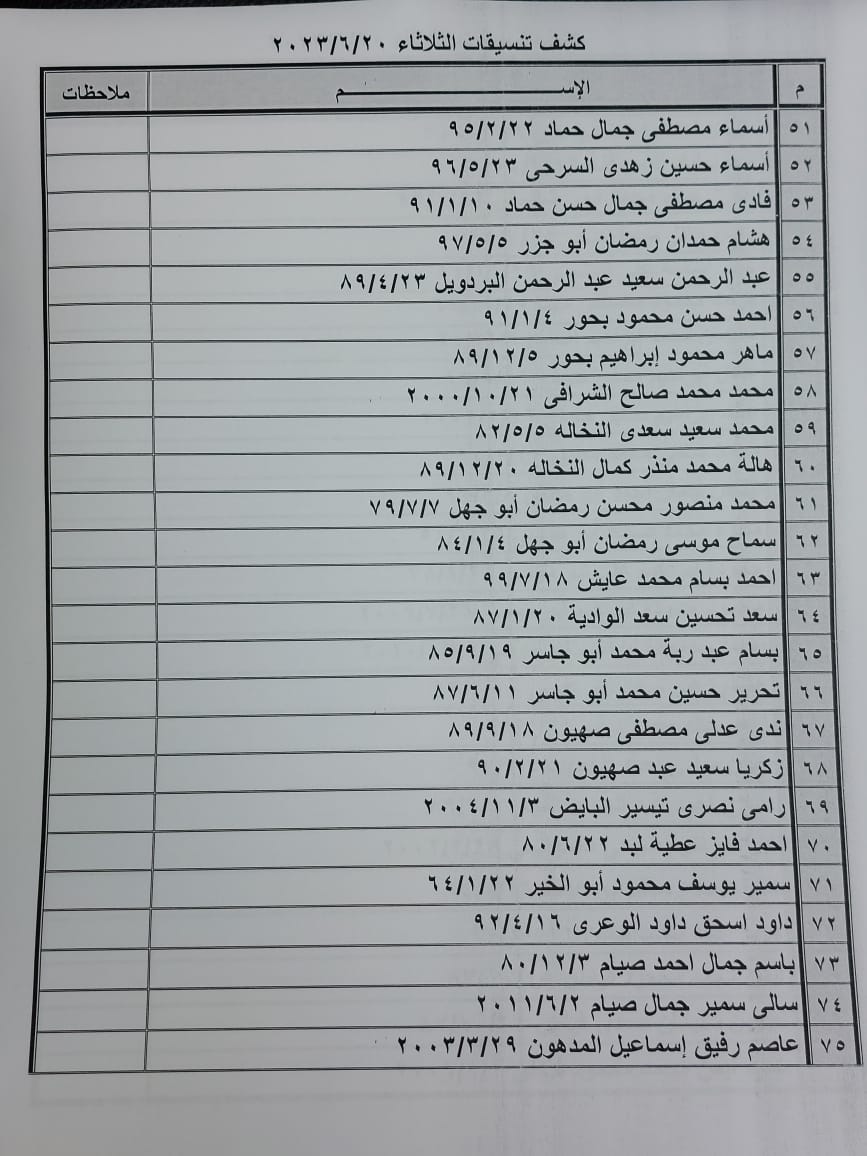 كشف تنسيقات الثلاثاء ٢٠٢٣/٦/٢٠
م الإســـم ملاحظات
٥١ أسماء مصطفى جمال حماد ٩٥/٢/٢٢
٥٢ أسماء حسين زهدى السرحى ٩٦/٥/٢٣
٥٣ فادى مصطفى جمال حسن حماد ٩١/١/١٠
٥٤ هشام حمدان رمضان أبو جزر ٩٧/٥/٥
٥٥ عبد الرحمن سعيد عبد الرحمن البردويل ٨٩/٤/٢٣
٥٦ احمد حسن محمود بحور ٩١/١/٤
٥٧ ماهر محمود إبراهيم بحور ٨٩/١٢/٥
٥٨ محمد محمد صالح الشرافى ٢٠٠٠/١٠/٢١
٥٩ محمد سعيد سعدى النخاله ٨٢/٥/٥
٦٠ هالة محمد منذر كمال النخاله ٨٩/١٢/٢٠
٦١ محمد منصور محسن رمضان أبو جهل ٧٩/٧/٧
٦٢ سماح موسى رمضان أبو جهل ٨٤/١/٤
٦٣ احمد بسام محمد عايش ٩٩/٧/١٨
٦٤ سعد تحسين سعد الوادية ٨٧/١/٢٠
٦٥ بسام عبد ربة محمد أبو جاسر ٨٥/٩/١٩
٦٦ تحرير حسين محمد أبو جاسر ٨٧/٦/١١
٦٧ ندى عدلى مصطفى صهيون ٨٩/٩/١٨
٦٨ زكريا سعيد عبد صهيون ٩٠/٢/٢١
٦٩ رامى نصرى تيسير البايض ٢٠٠٤/١١/٣
٧٠ احمد فايز عطية لبد ٨٠/٦/٢٢
٧١ سمير يوسف محمود أبو الخير ٦٤/١/٢٢
٧٢ داود اسحق داود الوعرى ٩٢/٤/١٦
٧٣ باسم جمال احمد صيام ٨٠/١٢/٣
٧٤ سالى سمير جمال صيام ٢٠١١/٦/٢
٧٥ عاصم رفيق إسماعيل المدهون ٢٠٠٣/٣/٢٩